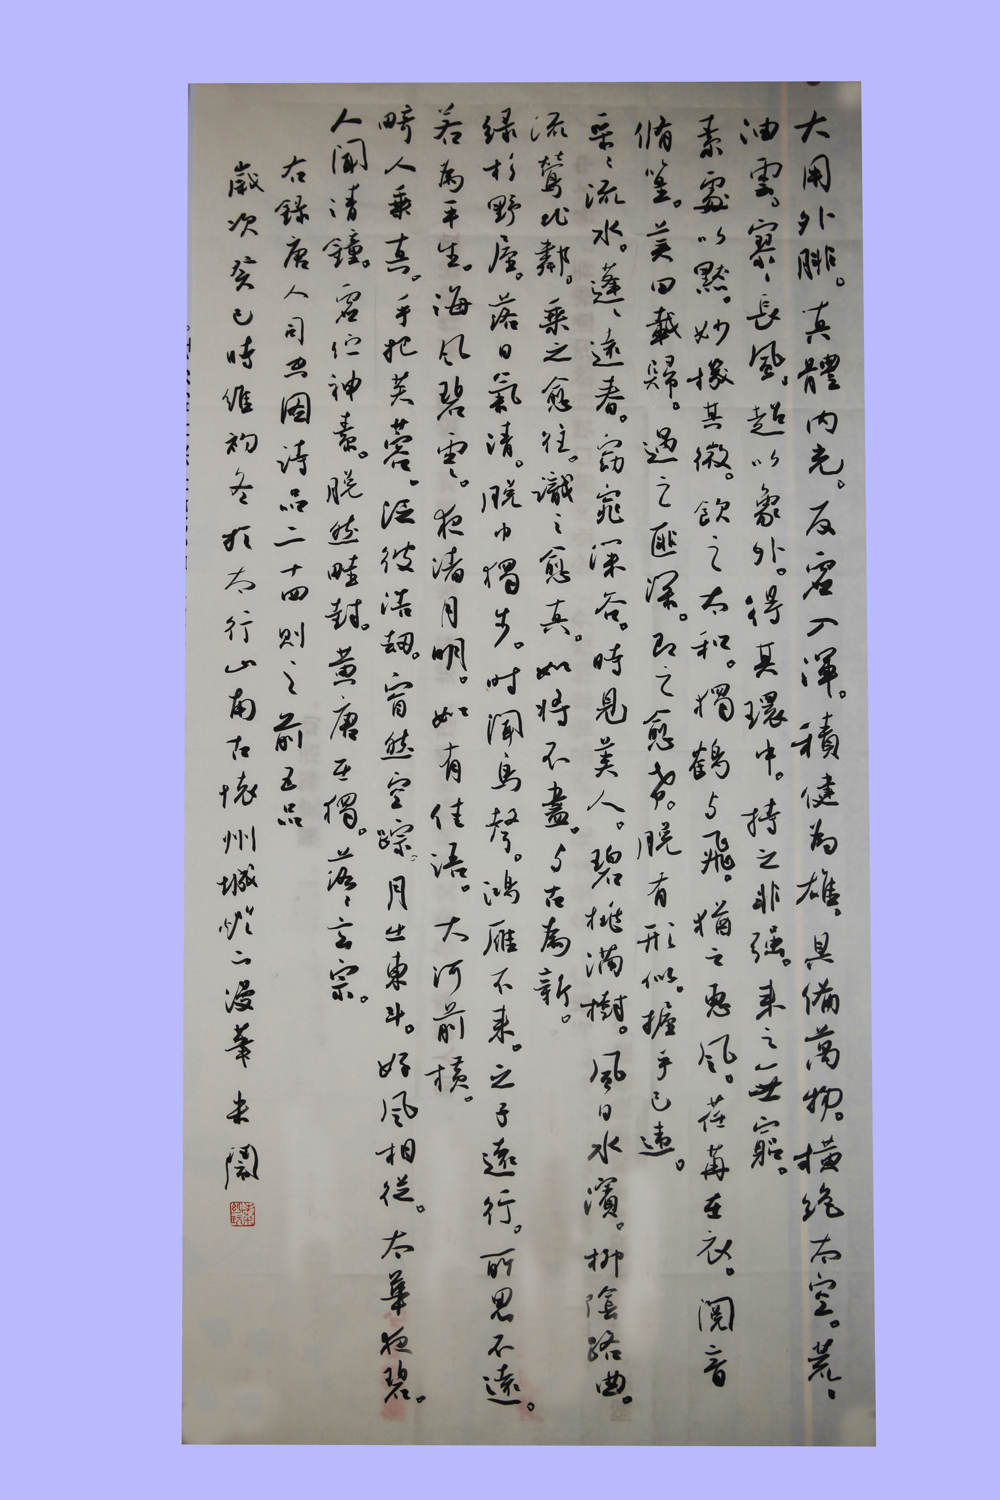 大用外腓。真體內充。反虛入渾。積健為雄。具備萬物。橫絶太空。荒〻
油雲。寥〻長風。超以象外。得其環中。持之非强。来之無窮。
素處以默。妙機其微。飲之太和。獨鶴与飛。猶之惠風。荏苒在衣。閱音
脩篁。美曰載歸。遇之匪深。即之愈希。脱有形似。握手已違。
采〻流水。蓬〻遠春。窈窕深谷。時見美人。碧桃滿樹。風日水濱。柳陰路曲。
流鶯比鄰。乗之愈往。識之愈真。如將不盡。与古為新。
緑杉野屋。落日氣清。脱巾獨步。时聞鳥聲。鴻雁不来。之子遠行。所思不遠。
若為平生。海風碧雲。夜渚月明。如有佳语。大河前横。
畸人乗真。手把芙蓉。泛彼浩劫。窅然空踪。月出東斗。好風相從。太華夜碧。
人聞清鐘。虚佇神素。脱然畦封。黄唐在獨。落〻玄宗。
右録唐人司空圖诗品二十四則之前五品
歲次癸巳時維初冬於太行山南古懷州城 漫筆